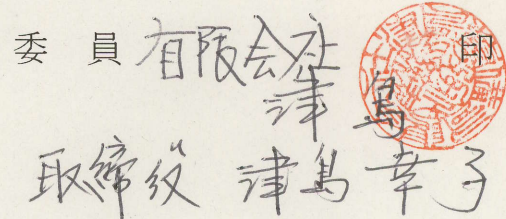 委員 有限会社 印
津島
取締役 津島幸子